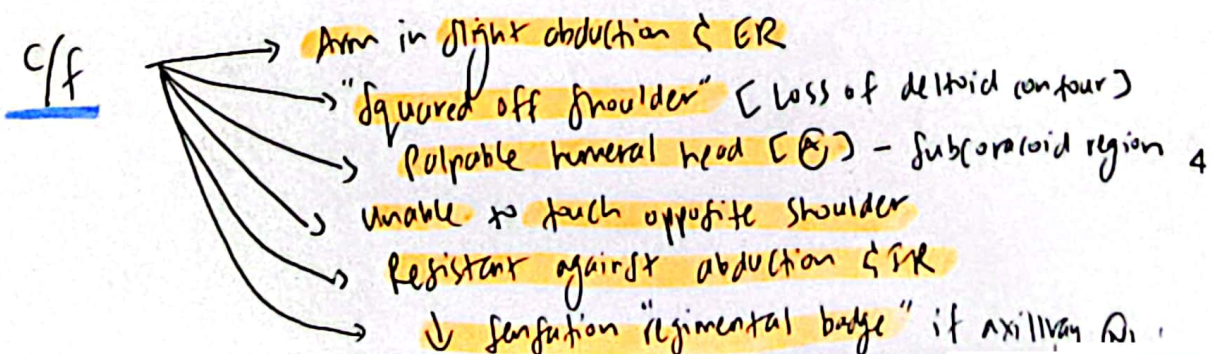 c/f
Arm in slight abduction & ER
"Squared off shoulder" [Loss of deltoid contour]
Palpable humeral head [A] - Subcoracoid region 4
unable to touch opposite shoulder
Resistant against abduction & IR
↓ sensation "regimental badge" if axillray